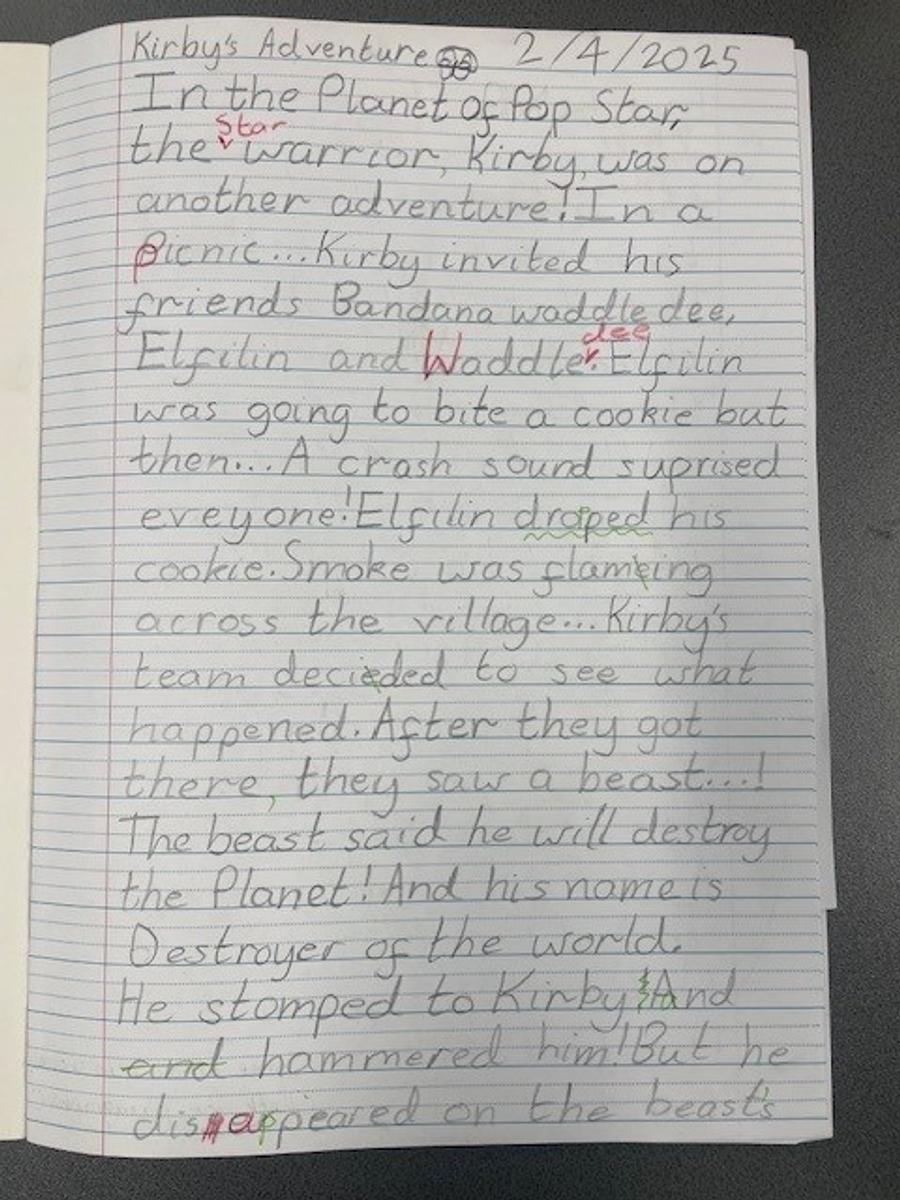 Kirby's Adventure 2/4/2025
In the Planet of Pop Star,
the Star warrior, Kirby, was on
another adventure! In a
Picnic... Kirby invited his
friends Bandana waddle dee,
Elfilin and Waddle dee. Elfilin
was going to bite a cookie but
then... A crash sound suprised
eveyone! Elfilin droped his
cookie. Smoke was flaming
across the village... Kirby's
team decided to see what
happened. After they got
there, they saw a beast...!
The beast said he will destroy
the Planet! And his name is
Destroyer of the world.
He stomped to Kirby And
and hammered him! But he
disappeared on the beast's